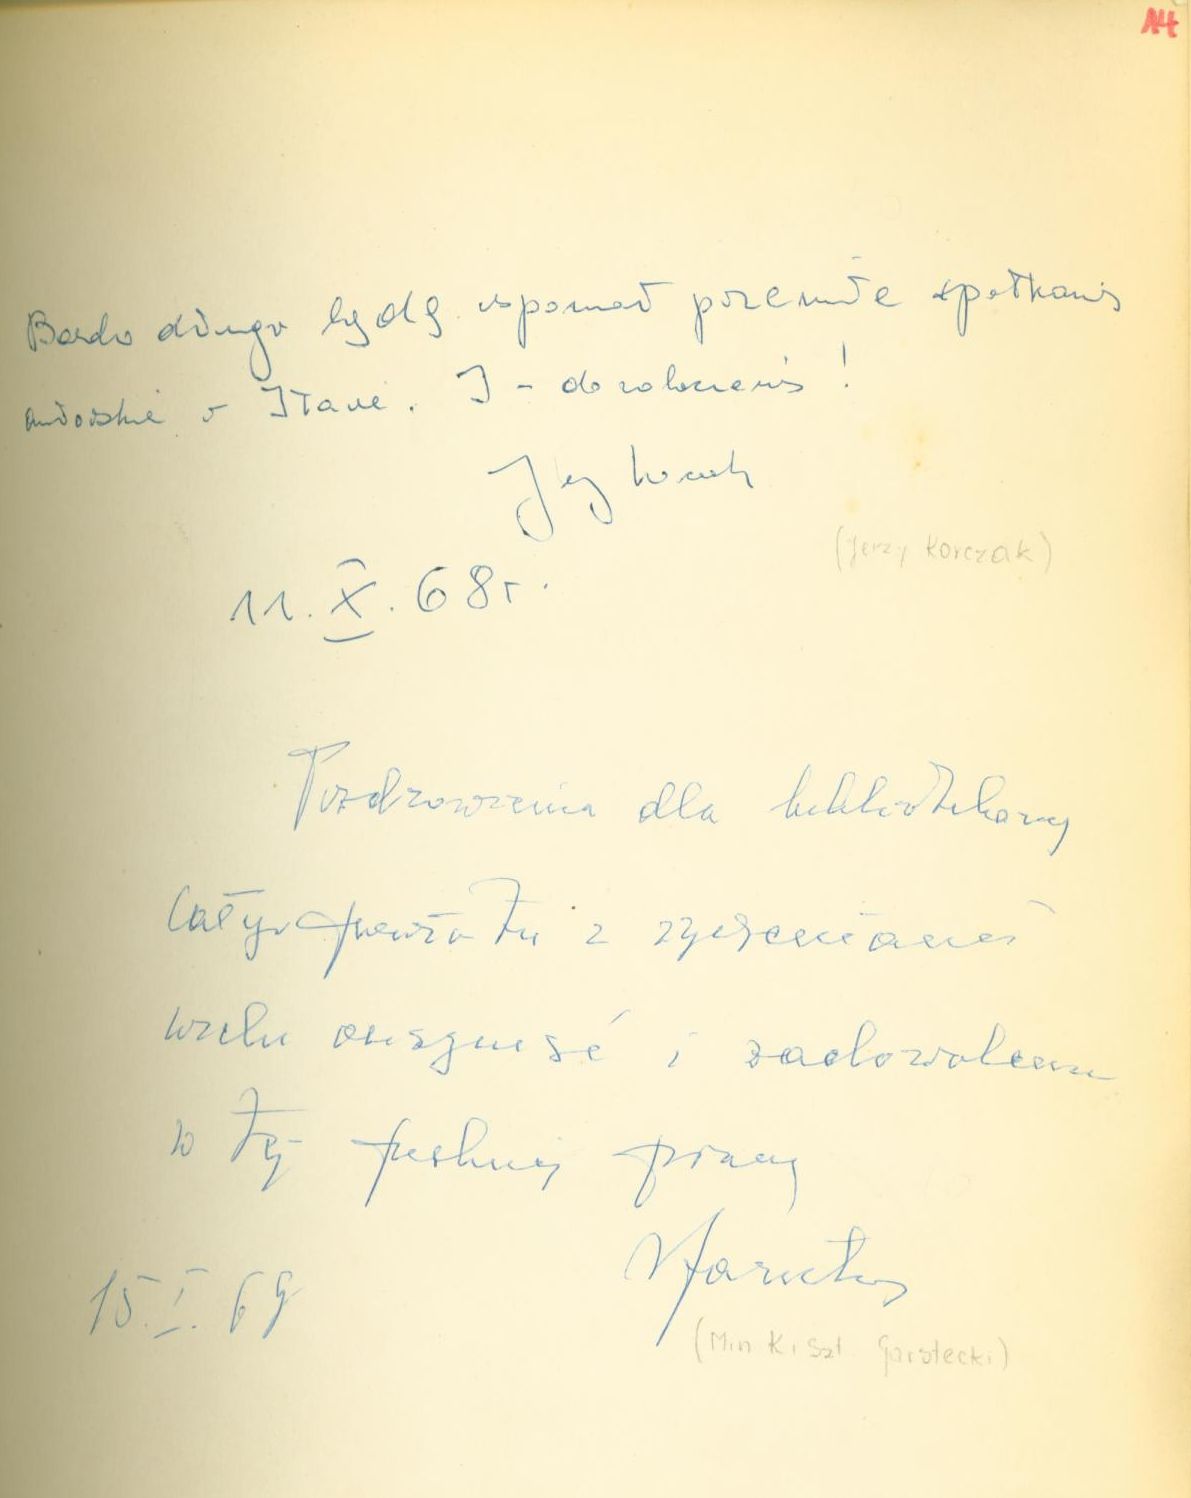 14
Bardo długo będę wspominał przemiłe spotkanie
autorskie w Iławie. I - do zobaczenia!
Jerzy Korczak
(Jerzy Korczak)
11.X.68r.
Pozdrowienia dla bibliotekarzy
całego powiatu z życzeniami
wielu osiągnięć i zadowolenia
w tej pięknej pracy
15.I.69
(Min K i Szt. Garstecki)